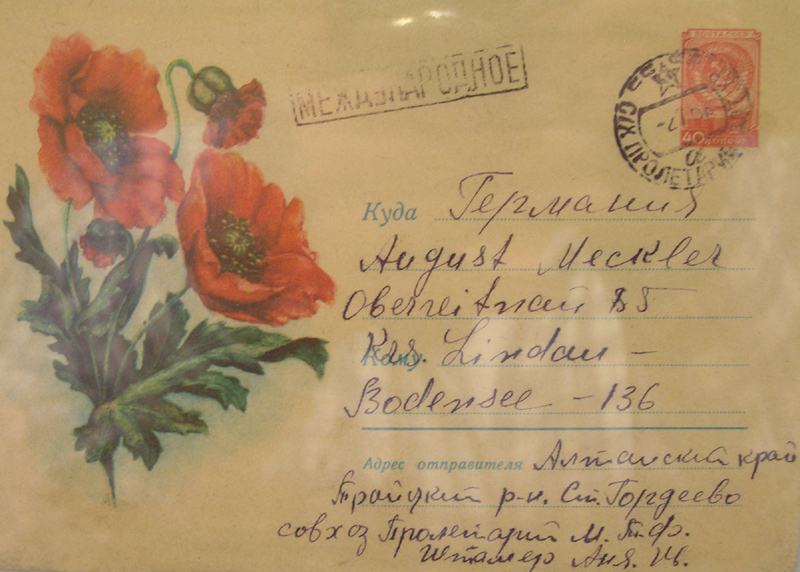 МЕЖДУНАРОДНОЕ
ПОЧТА СССР
40 КОП
СССР
С/Х ПРОЛЕТАРИЙ
Куда Германия
August Meckler
Oberreitnau 85
Krs. Lindau –
Кому
Bodensee – 136
Адрес отправителя Алтайский край
Тройцкий р-н. Ст. Гордеево
совхоз Пролетарий М. Т. Ф.